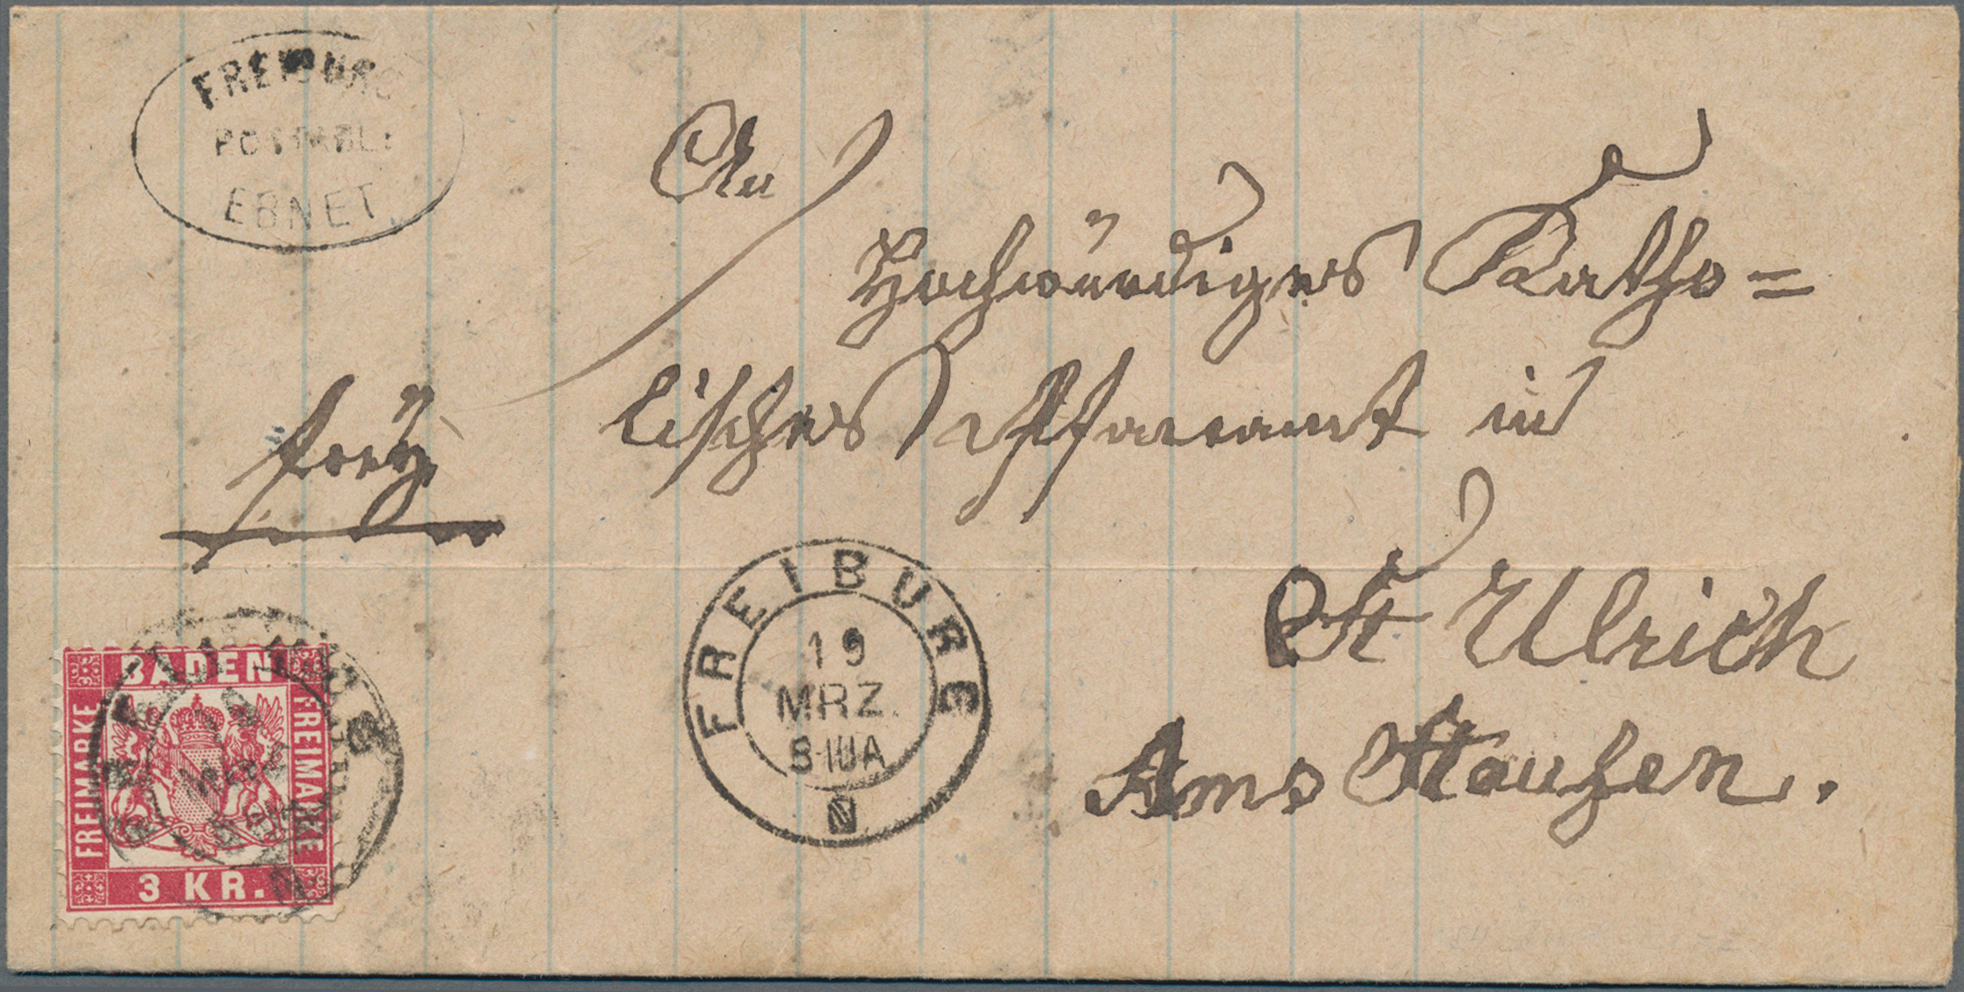 FREIBURG
POSTABL:
EBNET
An
Hochwürdiges Katho=
lisches Pfarramt in
frey
St Ulrich
Amts Staufen.
FREIBURG
19
MRZ.
8-10A
N
BADEN
FREIMARKE
FREIMARKE
3 KR.